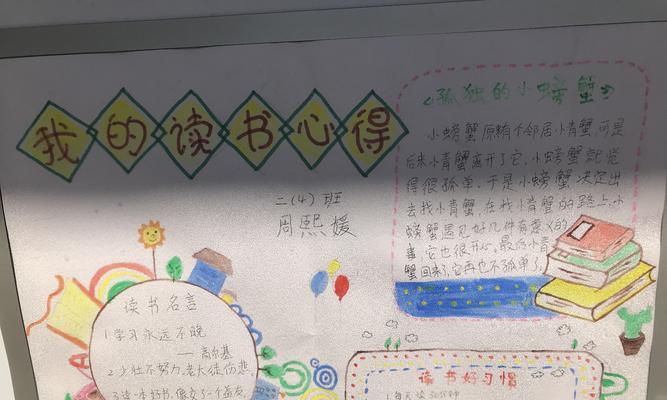 我的读书心得
二（4）班
周熙媛
《孤独的小螃蟹》
小螃蟹原有个邻居小青蟹,可是
后来小青蟹离开了它,小螃蟹就觉
得很孤单,于是小螃蟹决定出
去找小青蟹,在找小青蟹的路上,小
螃蟹遇见好几件有意义的
事,它也很开心,最后小青
蟹回来了,它再也不孤单了
读书名言
1.学习永远不晚
——高尔基
2.少壮不努力,老大徒伤悲
3.读一本好书,像交了一个益友
读书好习惯
1.每天读30分钟